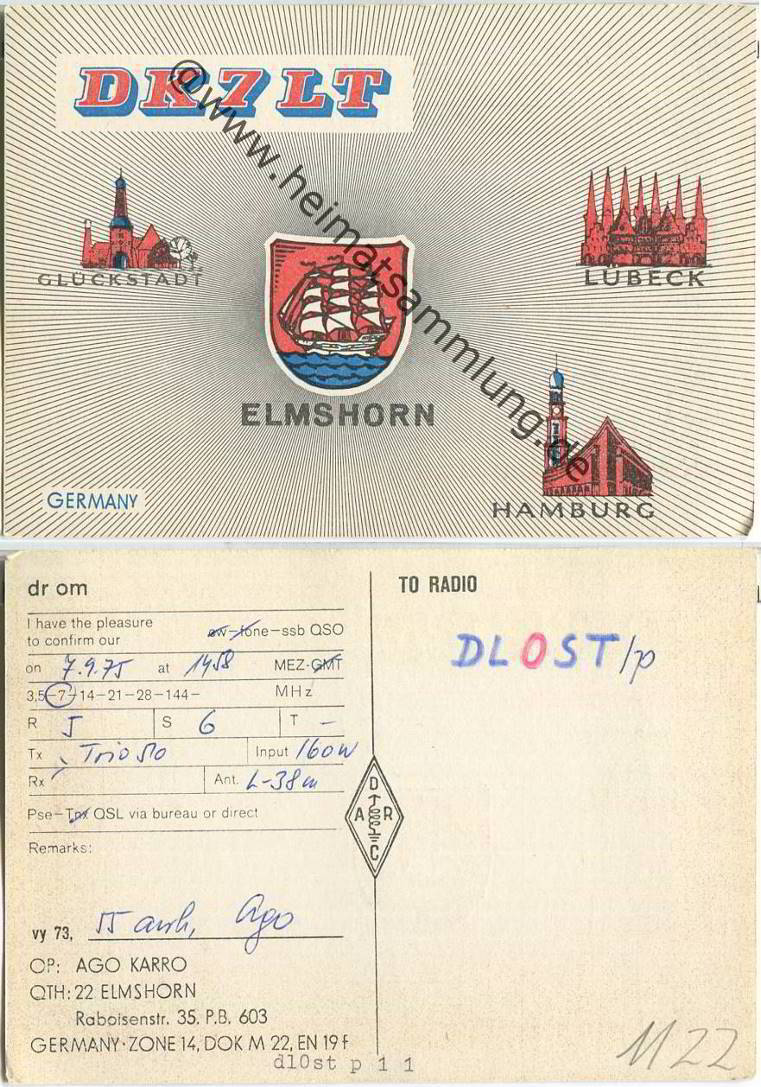 DK7LT
@www.heimatsammlung.de
GLÜCKSTADT
LÜBECK
ELMSHORN
HAMBURG
GERMANY
dr om
I have the pleasure
to confirm our cw-fone-ssb QSO
on 7.9.75 at 1458 MEZ-GMT
3,5-7-14-21-28-144- MHz
R 5 S 6 T -
Tx Trio 510 Input 160W
Rx Ant. L-38m
Pse-Tnx QSL via bureau or direct
Remarks:
vy 73, 55 Ago
OP: AGO KARRO
QTH: 22 ELMSHORN
Raboisenstr. 35. P.B. 603
GERMANY·ZONE 14, DOK M 22, EN 19 f
TO RADIO
DL0ST/p
DARC
dl0st p 1 1
M22